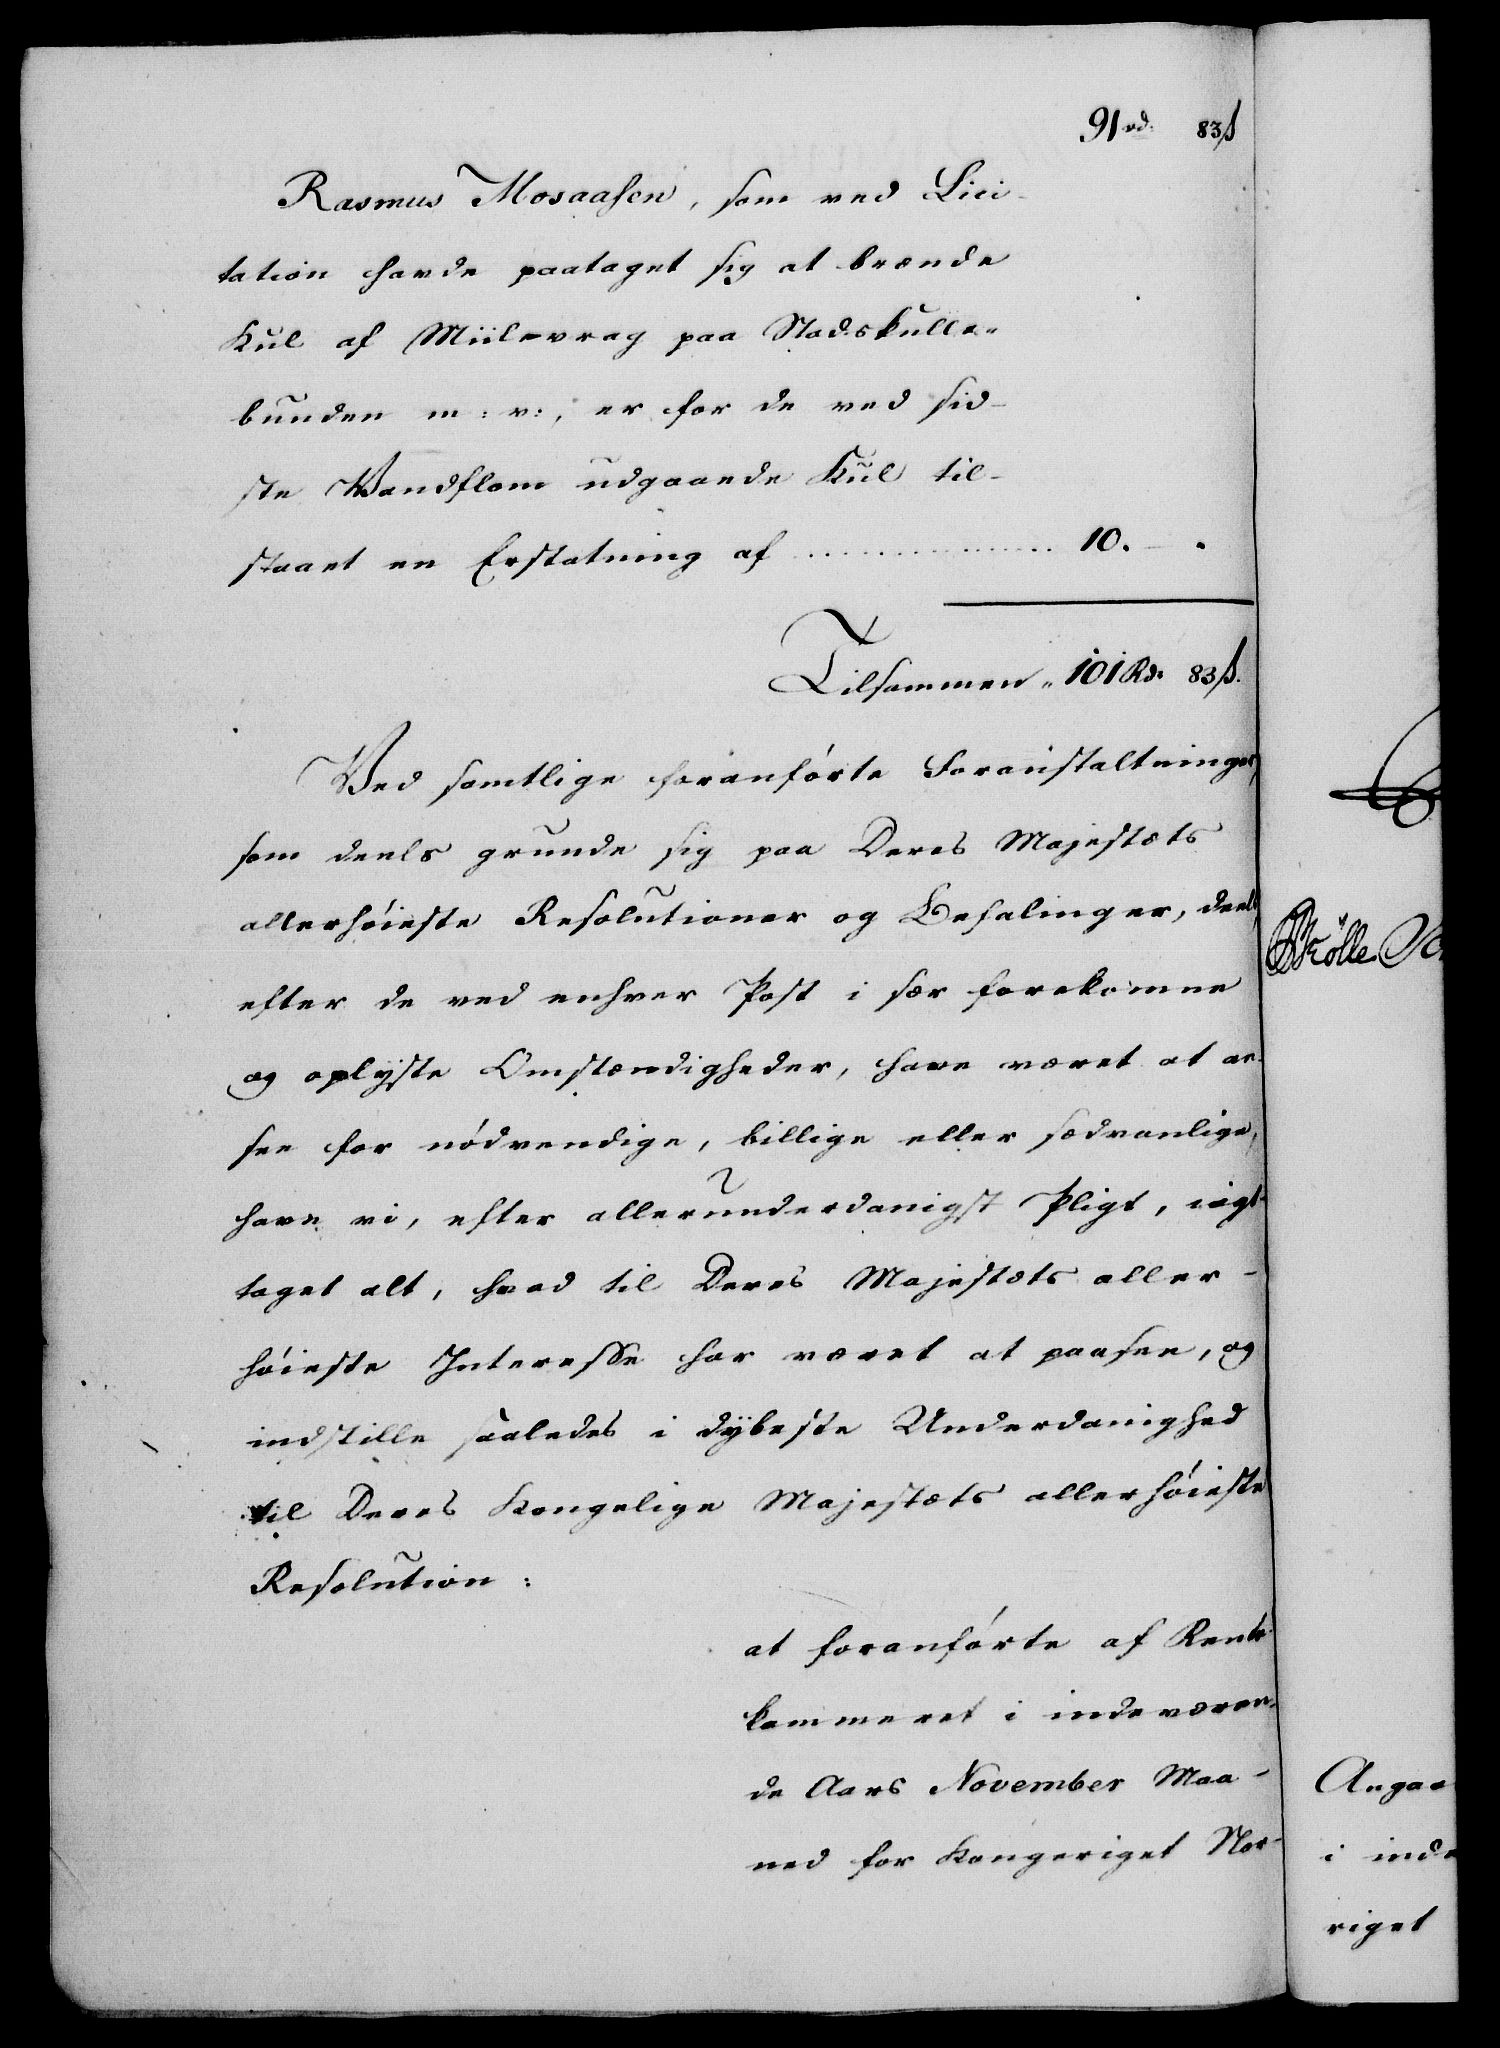 91 rd. 83 ß
Rasmus Mosaasen, som ved Lici-
tation havde paataget sig at brænde
Kul af Miilevrag paa Stadskulle-
bunden m: v:, er for de ved sid-
ste Vandflom udgaaede Kul til-
staaet en Erstatning af ................ 10. - .
Tilsammen „ 101 Rd. 83 ß.
Ved samtlige foranförte Foranstaltninger,
som deels grunde sig paa Deres Majestæts
allerhöieste Resolutioner og Befalinger, deels
efter de ved enhver Post i sær forekomne
og oplyste Omstændigheder, have været at an-
see for nödvendige, billige eller sædvanlige,
have vi, efter allerunderdanigst Pligt, iagt-
taget alt, hvad til Deres Majestæts aller-
höieste Interesse har været at paasee, og
indstille saaledes i dybeste Underdanighed
til Deres Kongelige Majestæts allerhöieste
Resolution:
at foranförte af Rente-
kammeret i indeværen-
de Aars November Maa-
ned for Kongeriget Nor-
Angaa
i inde
riget